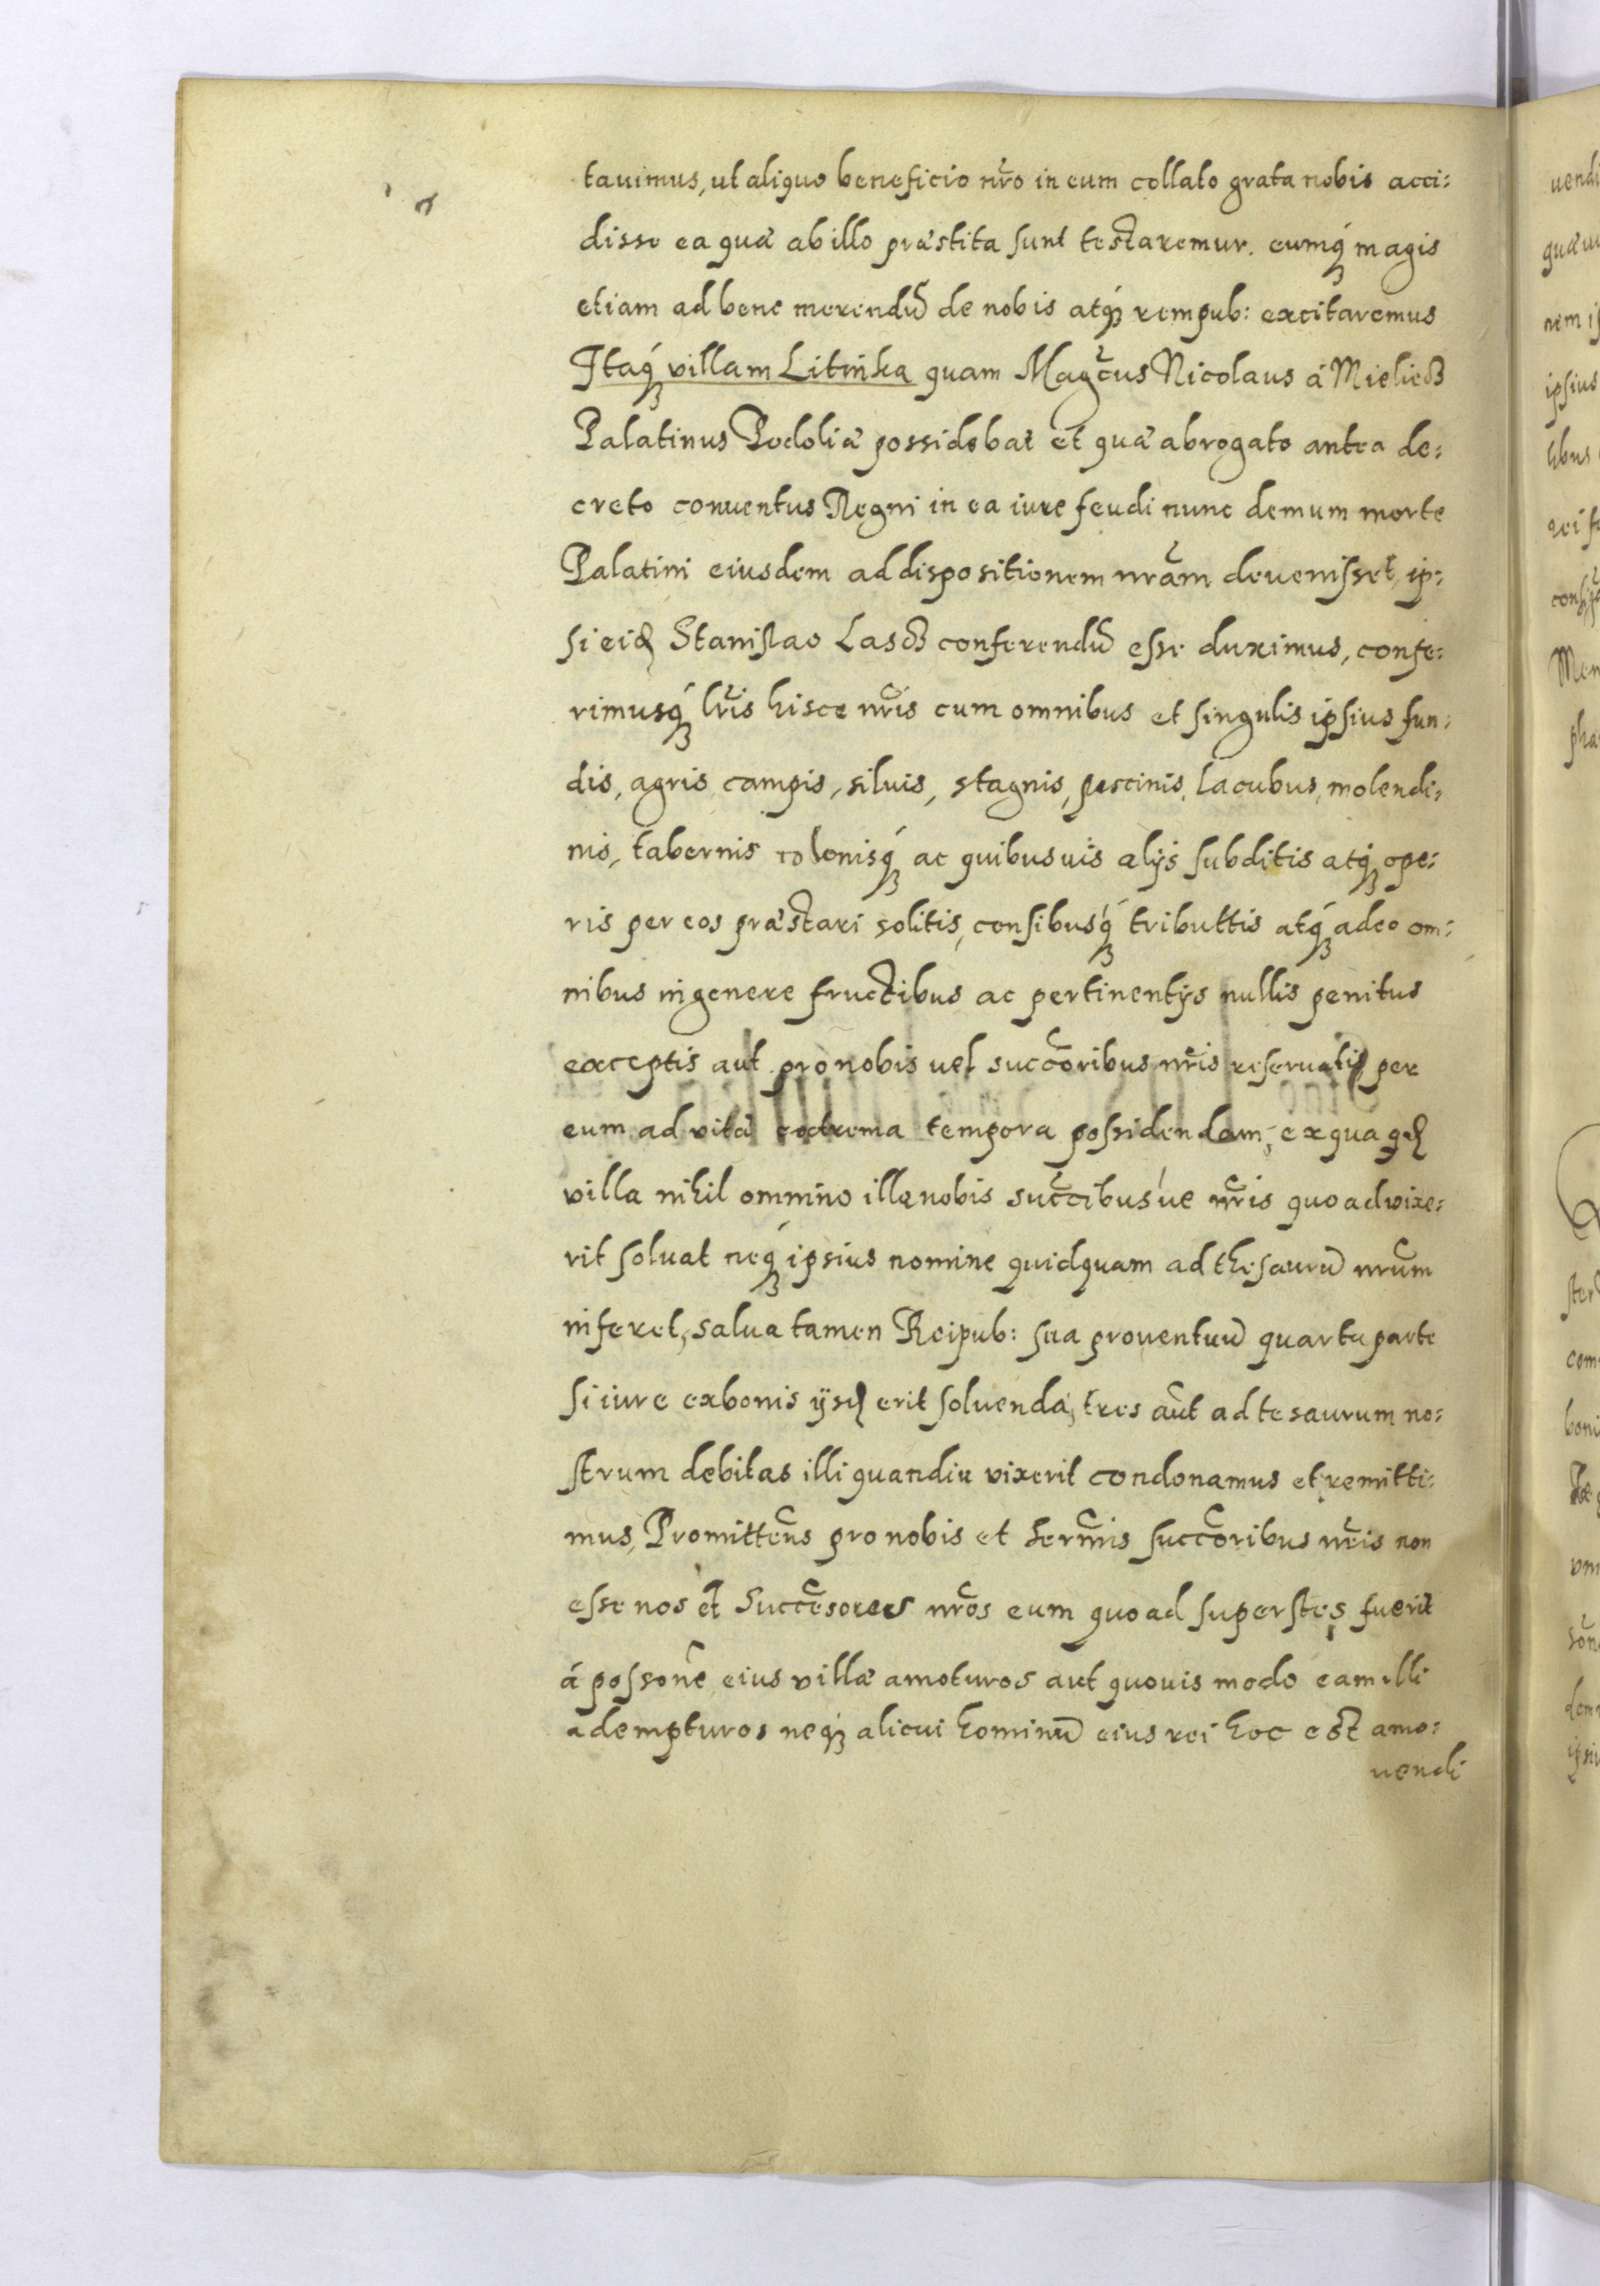 tauimus, ut aliquo beneficio nr̃o in eum collato grata nobis acci:
disse ea quæ ab illo præstita sunt testaremur. eumq́ꝫ magis
etiam ad bene merendũ de nobis atq́ꝫ rempub: excitaremus
Itaq́ꝫ villam Litinka quam Magc̃us Nicolaus á Mielicz
Palatinus Podoliæ possidebat et quæ abrogato antea de:
creto conuentus Regni in ea iure feudi nunc demum morte
Palatini eiusdem ad dispositionem nrãm deuenisset, ip:
si eid Stanislao Lascz conferendũ esse duximus, confe:
rimusq́ꝫ lr̃is hisce nr̃is cum omnibus et singulis ipsius fun:
dis, agris campis, siluis, stagnis, pescinis, lacubus, molendi:
nis, tabernis colonisq́ꝫ ac quibusuis alijs subditis atq́ꝫ ope:
ris per eos præstari solitis, censibusq́ꝫ tributtis atq́ꝫ adeo om:
nibus in genere fructibus ac pertinentijs nullis penitus
exceptis aut pro nobis uel succõribus nr̃is reseruatis per
eum ad vitæ extrema tempora possidendam, ex qua qd
villa nihil omnino ille nobis succ̃ibus'ue nr̃is quoad vixe:
rit soluat neq́ꝫ ipsius nomine quidquam ad thesaurũ nrũm
inferet, salua tamen Reipub: sua prouentuũ quarta parte
si iure ex bonis ijsd erit soluenda, tres aũt ad tesaurum no:
strum debitas illi quandiu vixerit condonamus et remitti:
mus, Promittẽns pro nobis et Serm̃is succõribus nr̃is non
esse nos et Succẽsorees nr̃os eum quoad superstes fuerit
á possonẽ eius villæ amoturos aut quouis modo eam illi
adempturos neq́ꝫ alicui hominũ eius rei hoc est amo:
uendi